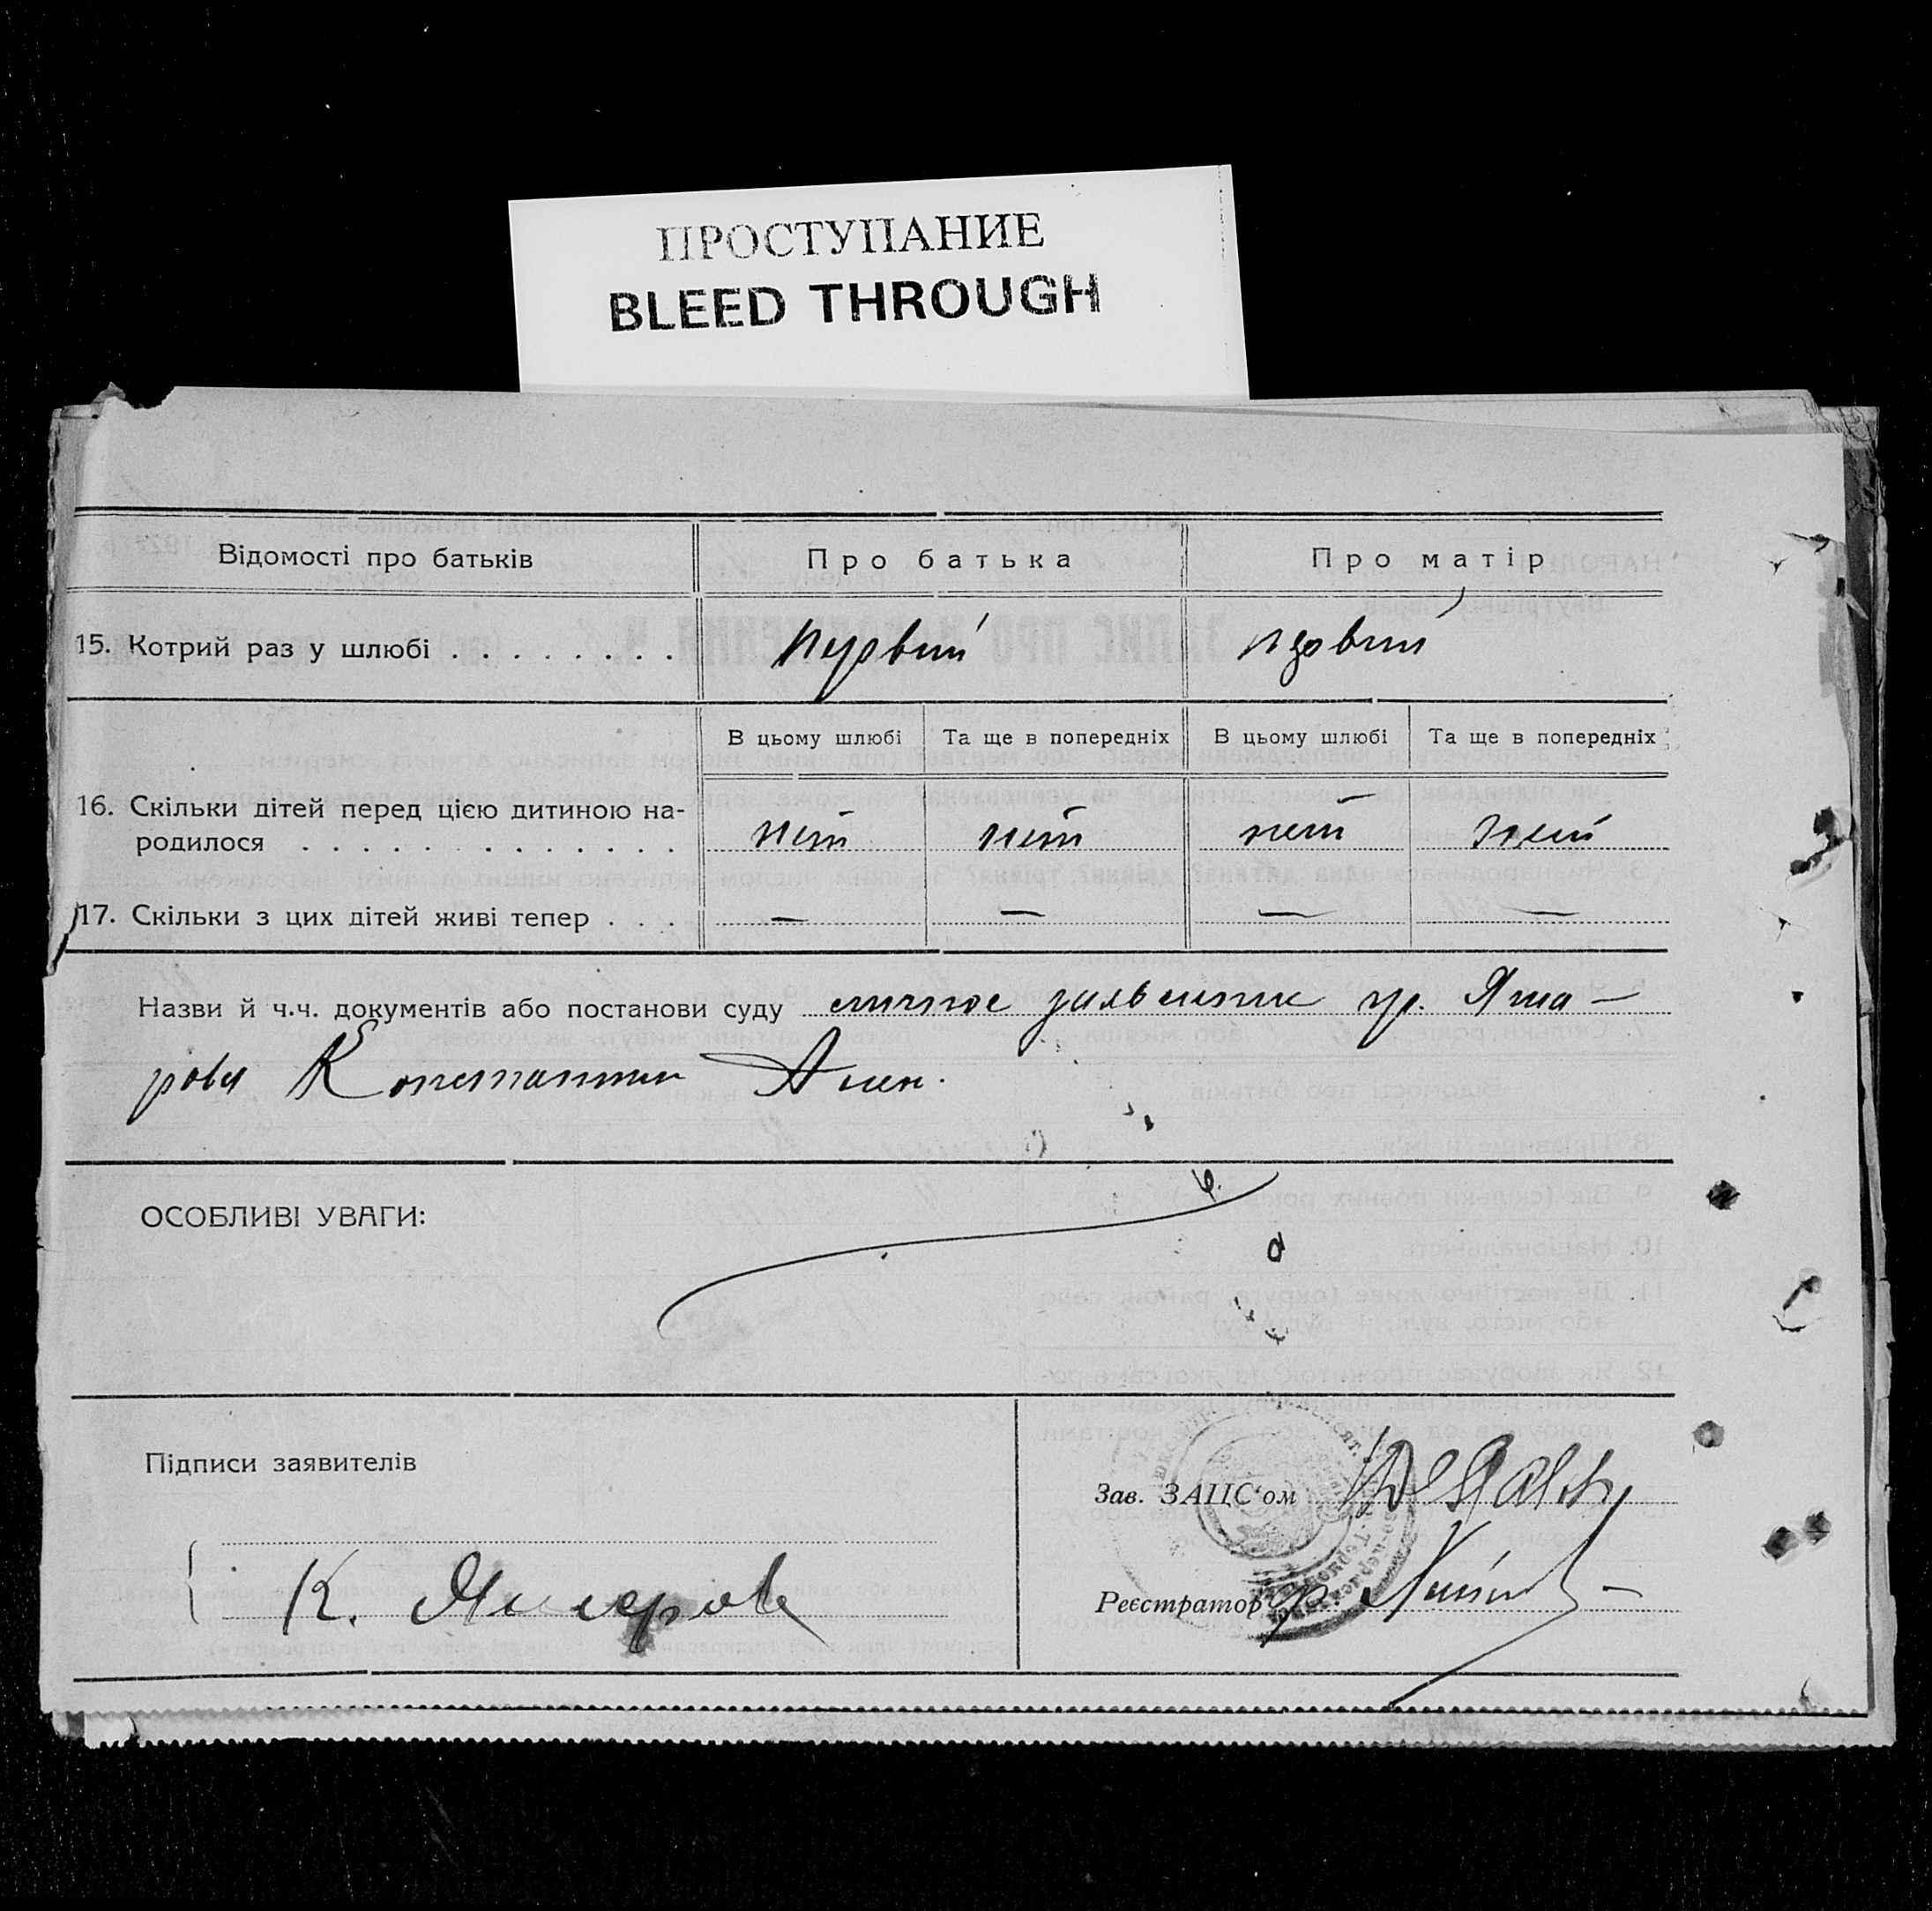 ПРОСТУПАНИЕ
BLEED THROUGH
Відомості про батьків Про батька Про матір
15. Котрий раз у шлюбі . . . . . . . . первый первый
В цьому шлюбі Та ще в попередніх В цьому шлюбі Та ще в попередніх
16. Скільки дітей перед цією дитиною на-
родилося . . . . . . . . . . . . . нет нет нет нет
17. Скільки з цих дітей живі тепер . . . — — — —
Назви й ч.ч. документів або постанови суду личное заявление гр.
Константин
ОСОБЛИВІ УВАГИ:
Підписи заявителів
Зав. ЗАЦС'ом
К.
Реєстратор